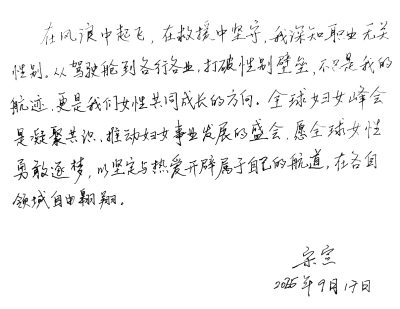 在风浪中起飞，在救援中坚守，我深知职业无关
性别。从驾驶舱到各行各业，打破性别壁垒，不只是我的
航迹，更是我们女性共同成长的方向。全球妇女峰会
是凝聚共识、推动妇女事业发展的盛会，愿全球女性
勇敢逐梦，以坚定与热爱开辟属于自己的航道，在各自
领域自由翱翔。
宋寅
2025年9月17日